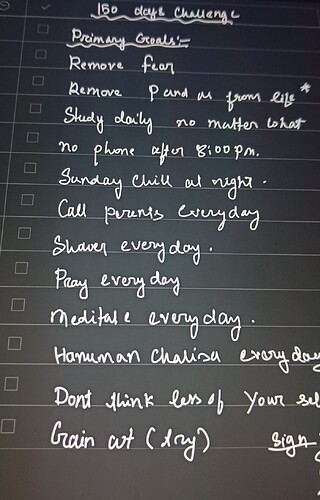 150 days Challenge
Primary Goals:-
Remove fear
Remove P and M from life *
Study daily no matter what
no phone after 8:00 pm.
Sunday chill at night.
Call parents everyday
Shower everyday.
Pray everyday
Meditate everyday.
Hanuman Chalisa everyday
Dont think less of your sel
Gain wt (try) sign